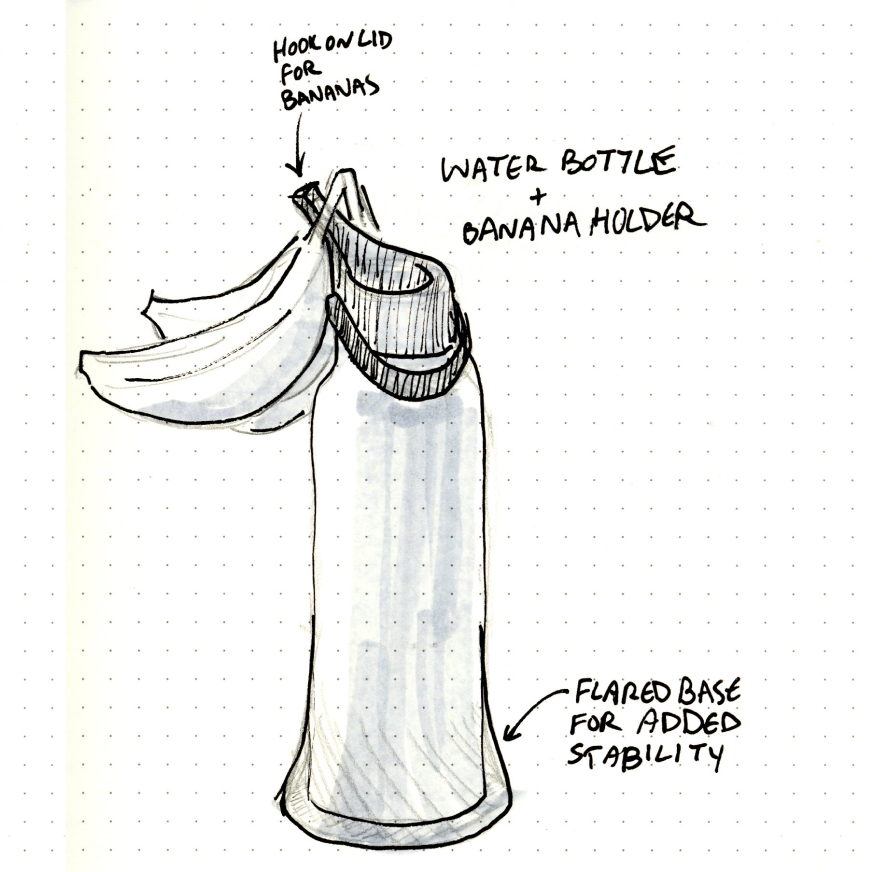 HOOK ON LID
FOR
BANANAS
WATER BOTTLE
+
BANANA HOLDER
FLARED BASE
FOR ADDED
STABILITY